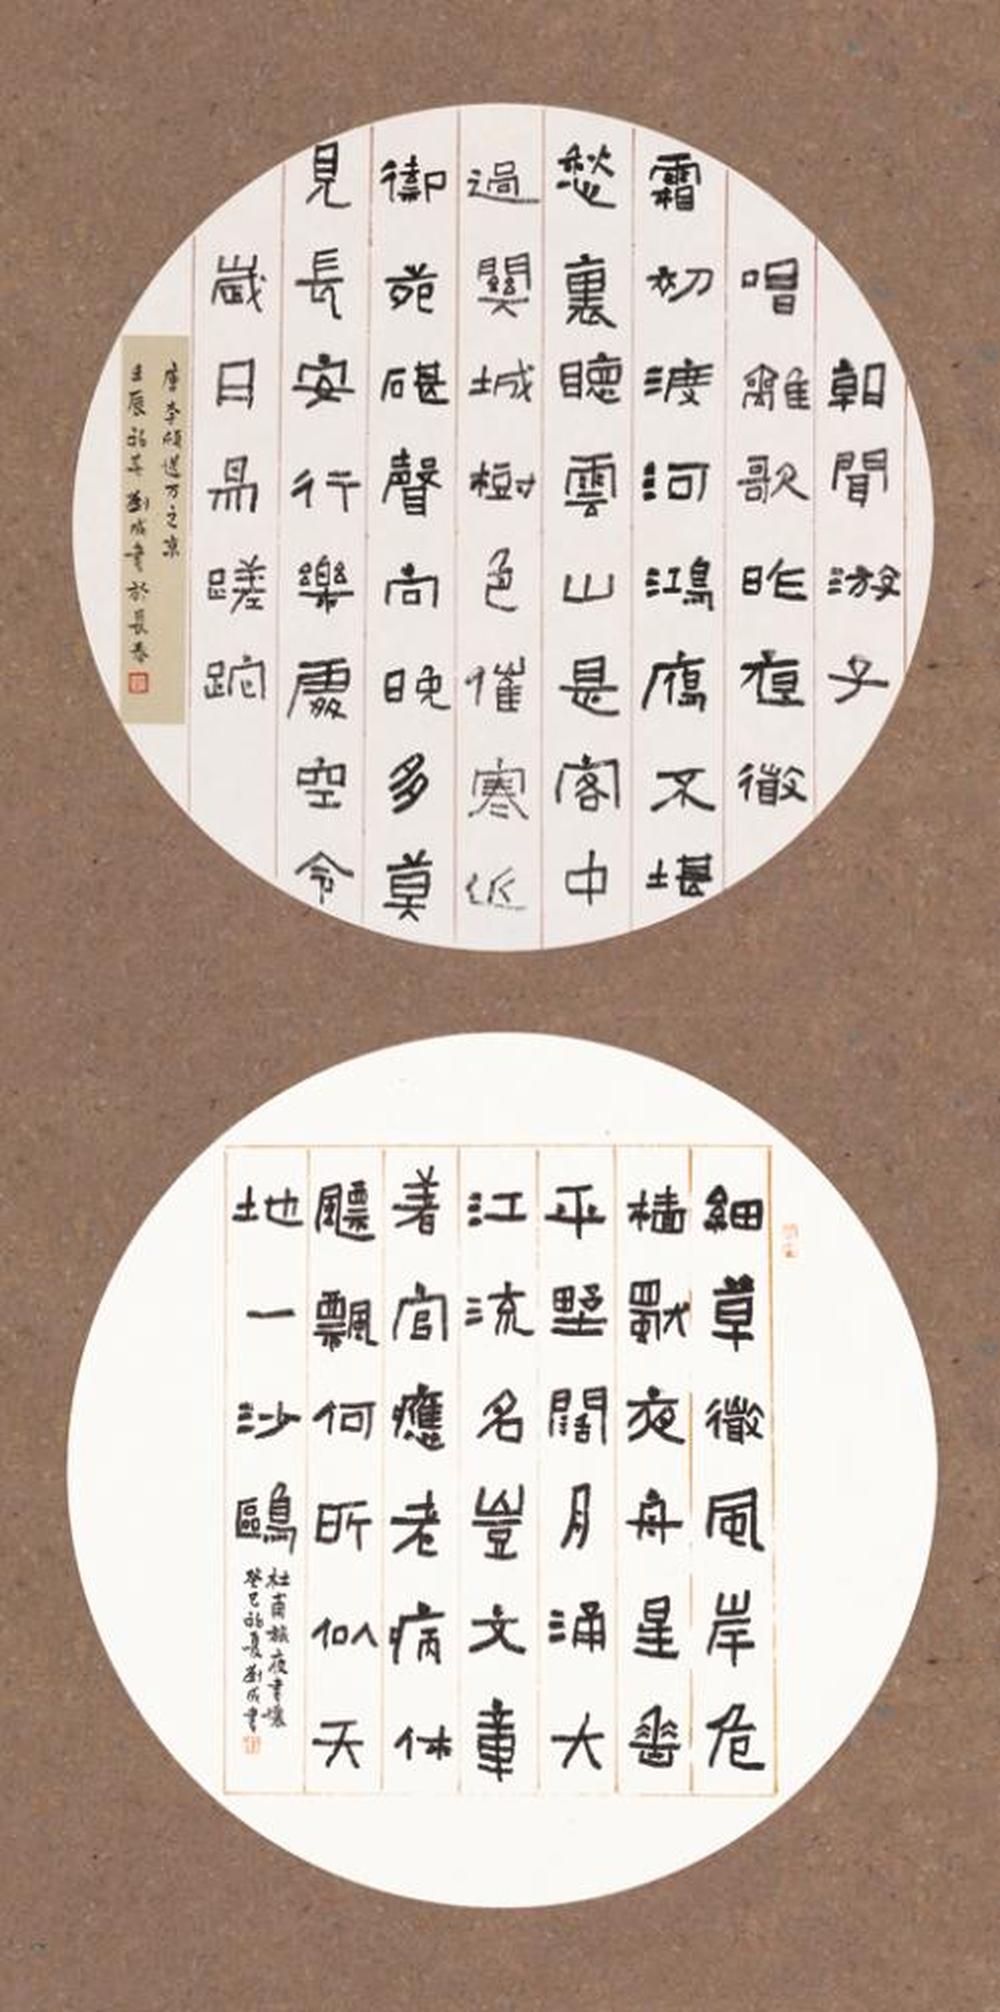 朝聞游子
唱離歌昨夜微
霜初渡河鴻雁不堪
愁裏聽雲山是客中
過關城樹色催寒近
御苑碪聲向晚多莫
見長安行樂處空令
歲日易蹉跎
唐李頎送万之京
壬辰初冬劉成書於長春
細草微風岸危
檣獨夜舟星垂
平野闊月涌大
江流名豈文章
著官應老病休
飄飄何所似天
地一沙鷗
杜甫旅夜書懷
癸巳初夏劉成書